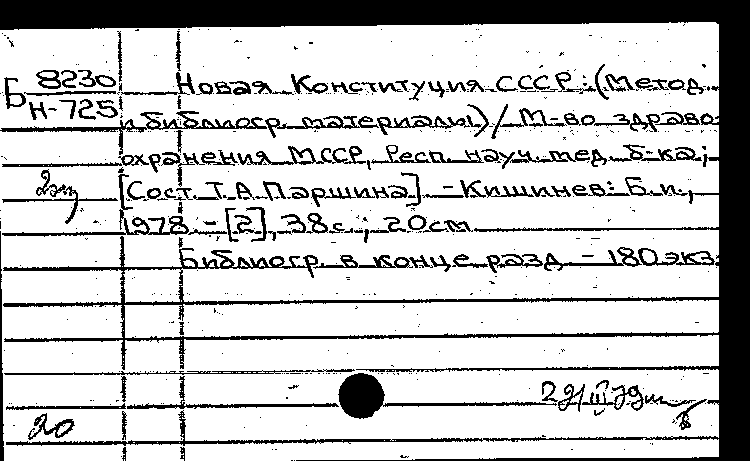 Б 8230 Новая Конституция СССР: (Метод.
Н-725 и библиогр. материалы) / М-во здраво-
охранения МССР, Респ. науч. мед. б-ка;
2 экз [Сост. Т.А. Паршина]. - Кишинев: Б.и.,
1978. - [2], 38 с.; 20 см.
Библиогр. в конце разд. - 180 экз.
20